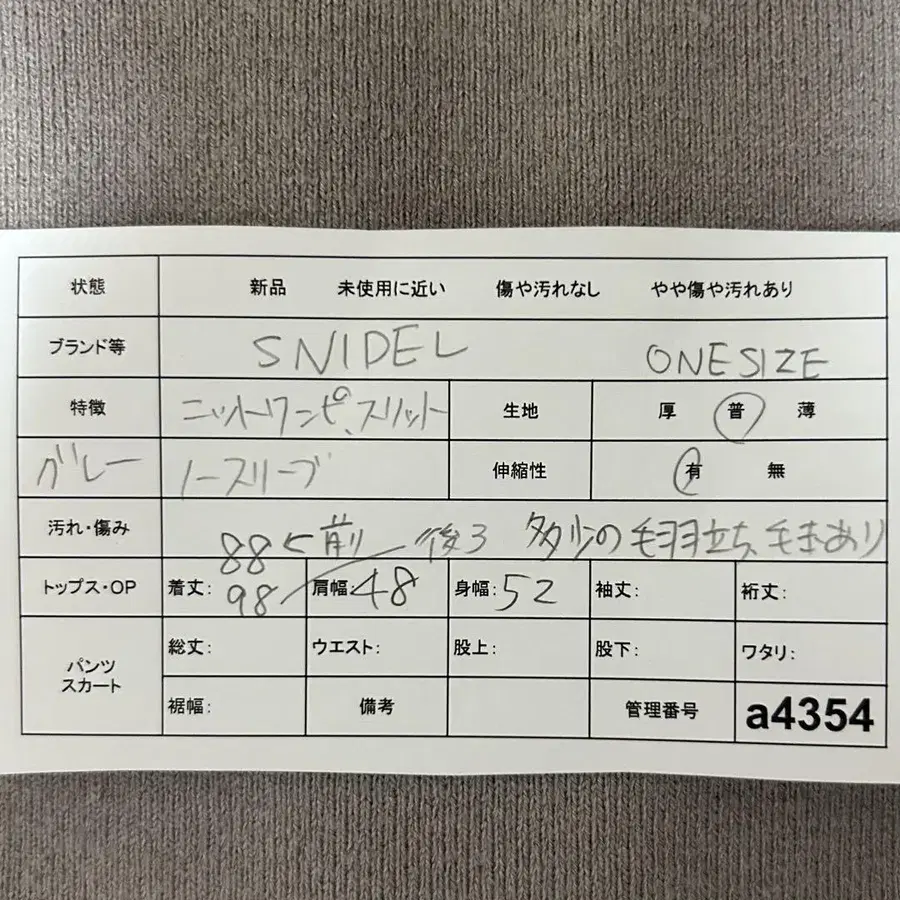 状態 新品 未使用に近い 傷や汚れなし やや傷や汚れあり
ブランド等 SNIDEL ONESIZE
特徴 ニットワンピ、スリット 生地 厚 普 薄
グレー ノースリーブ 伸縮性 有 無
汚れ・傷み 88 前 後ろ 多少の毛羽立ち、毛玉あり
トップス・OP 着丈: 98 肩幅: 48 身幅: 52 袖丈: 裄丈:
パンツ スカート 総丈: ウエスト: 股上: 股下: ワタリ:
裾幅: 備考 管理番号 a4354